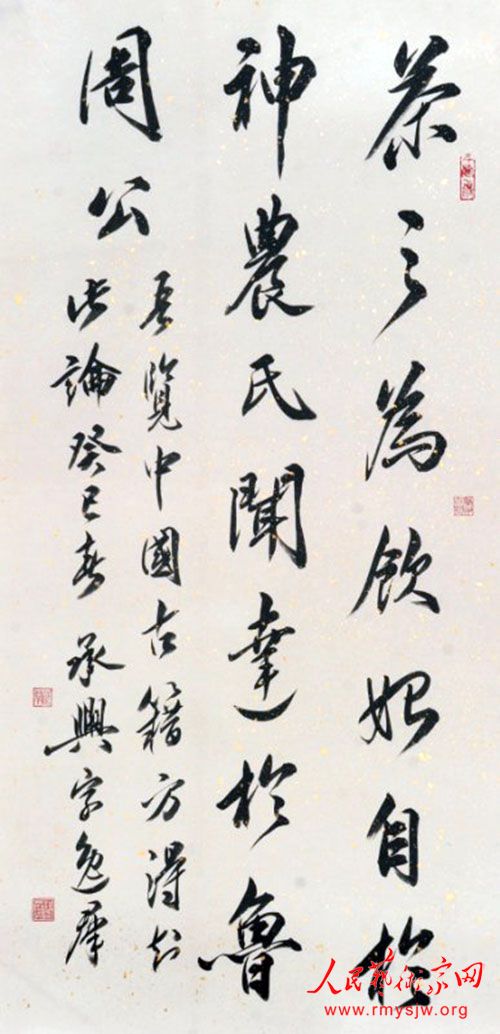 茶之為飲始自於
神農氏聞達於魯
周公
吾覽中國古籍方得出
此論癸巳春承興字逸群
人民藝術家网
www.rmysjw.org